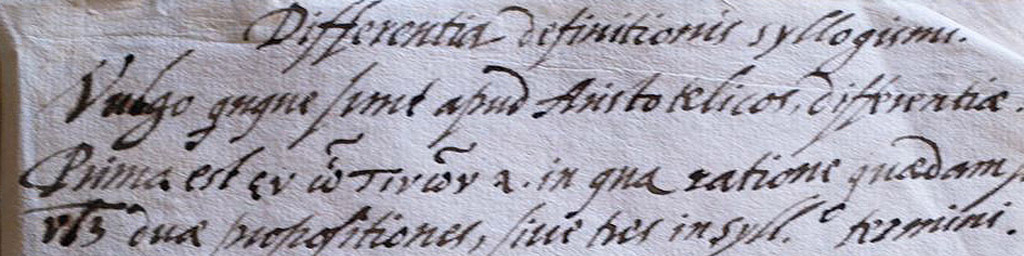 Differentia definitionis syllogismi.
Vulgo quque sunt apud Aristotelicos, differentiæ.
Prima est in qua ratione quædam
duæ propositiones, siue tres in syll.º termini.